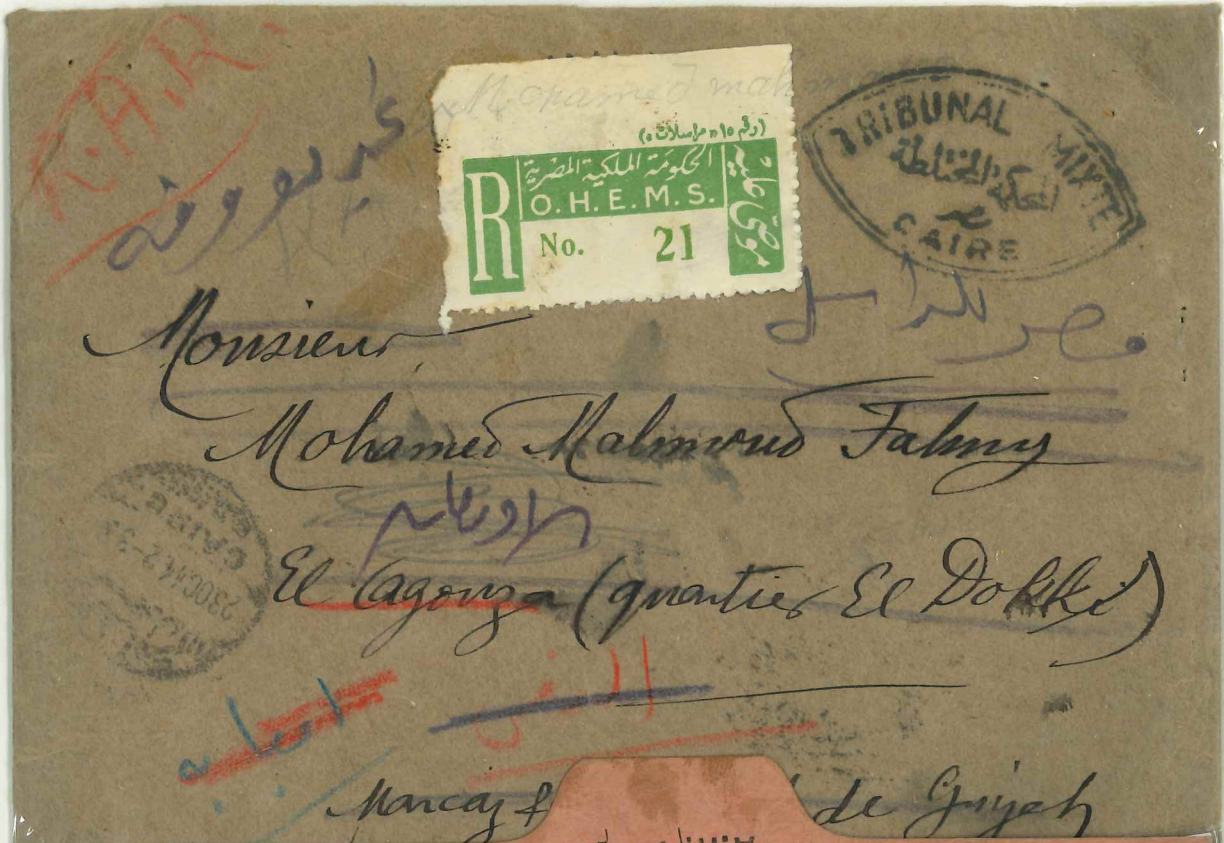 A.R.
Mohamed mahm
(رقم ١٥ « مراسلات »)
الحكومة الملكية المصرية
R O.H.E.M.S.
No. 21
موصى عليه
TRIBUNAL MIXTE
المحكمة المختلطة
مصر
CAIRE
غير معروف
مصر للراسل
Monsieur
Mohamed Mahmoud Fahmy
El Agouza (quartier El Dokki)
CAIRE
23 OC
امبابه
Marcaz &
de Guizeh